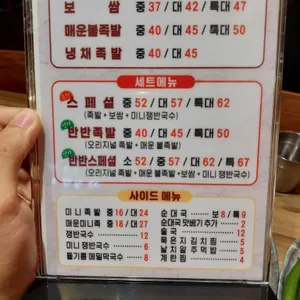 보 쌈 중 37 / 대 42 / 특대 47
매운불족발 중 40 / 대 45 / 특대 50
냉채족발 중 40 / 대 45
세트메뉴
스페셜 중 52 / 대 57 / 특대 62
(족발 + 보쌈 + 미니쟁반국수)
반반족발 중 40 / 대 45 / 특대 50
(오리지널 족발 + 매운 불족발)
반반스페셜 소 52 / 중 57 / 대 62 / 특 67
(오리지널 족발 + 매운불족발 + 보쌈 + 미니쟁반국수)
사이드 메뉴
미니족발 중 16 / 대 24
매운미니족 중 18 / 대 27
쟁반국수 12
미니쟁반국수 6
들기름메밀막국수 8
순대국 보 8 / 특 9
순대국 맛베기 추가 2
술국 12
묵은지김치찜
날치알주먹밥
계란찜 4